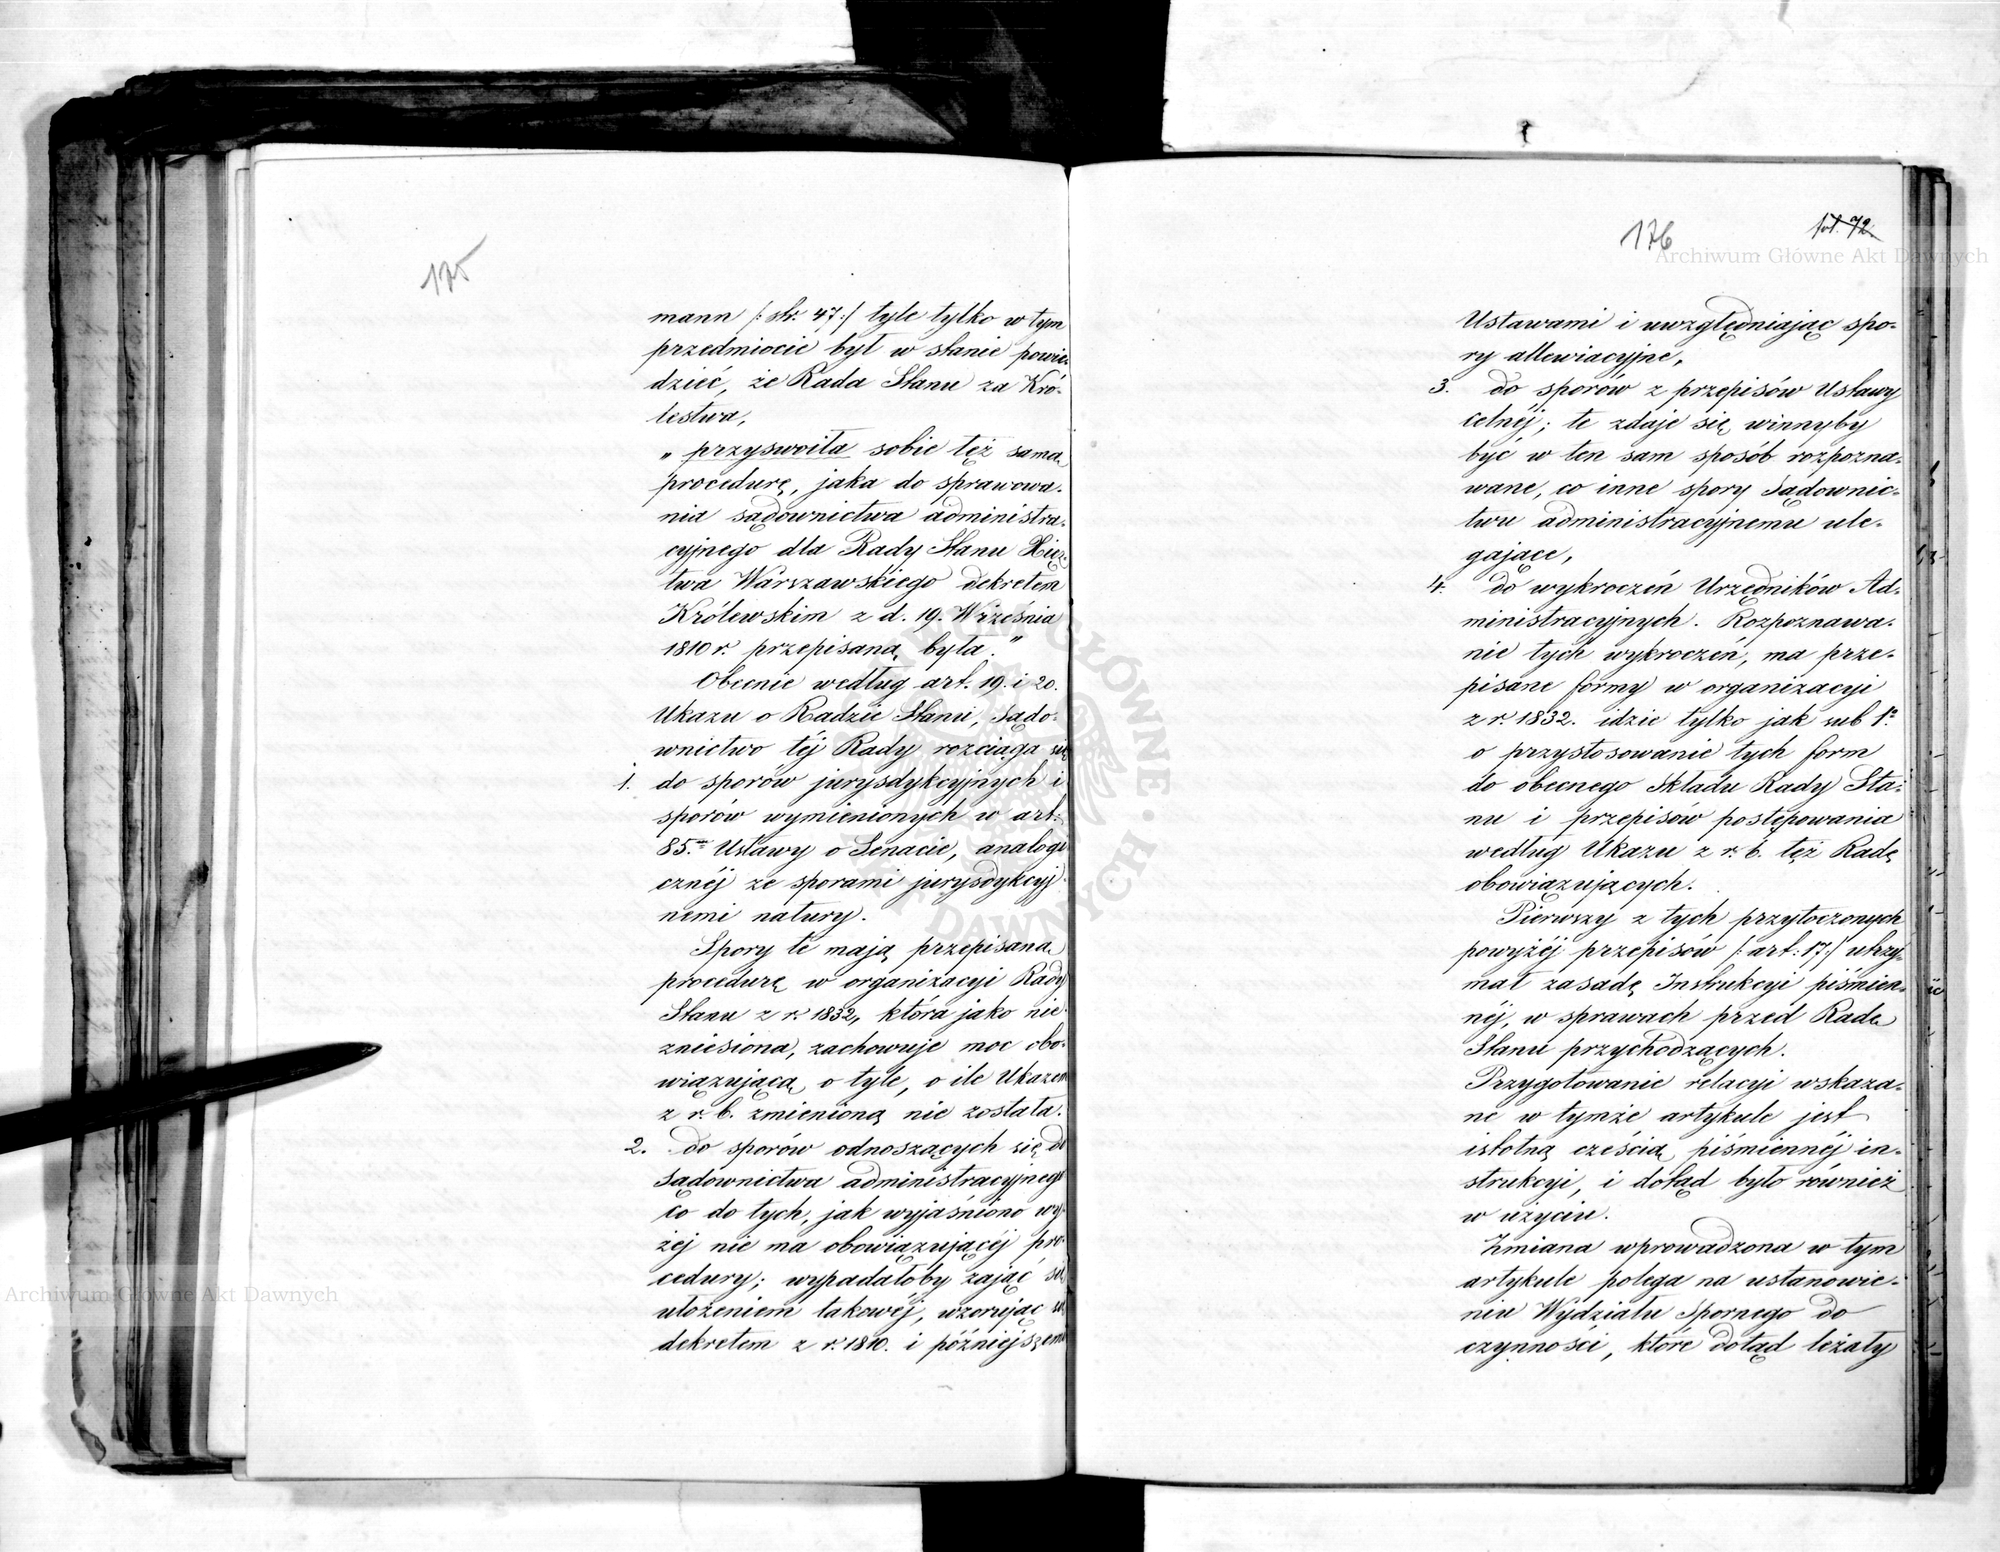 175
mann /: str. 47:/ tyle tylko w tym
przedmiocie był w stanie powie-
dzieć, że Rada Stanu za Kró-
lestwa,
„przyswoiła sobie też samą
procedurę, jaka do sprawowa-
nia sądownictwa administra-
cyjnego dla Rady Stanu Xięz-
twa Warszawskiego dekretem
Królewskim z d. 19. Września
1810 r. przepisaną była."
Obecnie według art. 19. i 20.
Ukazu o Radzie Stanu, Sądo-
wnictwo téj Rady rozciąga się
1. do sporów jurysdykcyjnych i
sporów wymienionych w art:
85.m Ustawy o Senacie, analogi
cznéj ze sporami jurysdykcyj
nemi natury.
Spory te mają przepisaną
procedurę w organizacyi Rady
Stanu z r. 1832, która jako nie
zniesiona, zachowuje moc obo-
wiązującą o tyle, o ile Ukazem
z r. b. zmienioną nie została.
2. do sporów odnoszących się do
sądownictwa administracyjnego
co do tych, jak wyjaśniono wy-
żej nie ma obowiązującéj pro-
cedury; wypadałoby zająć się
ułożeniem takowéj, wzorując się
dekretem z r. 1810. i późniejszemi
176
fol. 72.
Ustawami i uwzględniając spo-
ry allewiacyjne,
3. do sporów z przepisów Ustawy
celnéj; te zdaje się winnyby
być w ten sam sposób rozpozna-
wane, co inne spory Sądownic-
twu administracyjnemu ule-
gające,
4. do wykroczeń Urzędników Ad-
ministracyjnych. Rozpoznawa-
nie tych wykroczeń, ma prze-
pisane formy w organizacyi
z r. 1832. idzie tylko jak sub 1o.
o przystosowanie tych form
do obecnego Składu Rady Sta-
nu i przepisów postępowania
według Ukazu z r. b. też Radę
obowiązujących.
Pierwszy z tych przytoczonych
powyżéj przepisów /: art: 17:/ utrzy-
mał zasadę Instrukcyi piśmien-
néj, w sprawach przed Radę
Stanu przychodzących.
Przygotowanie relacyi wskaza-
ne w tymże artykule jest
istotną częścią piśmiennéj in-
strukcyi, i dotąd było również
w użyciu.
Zmiana wprowadzona w tym
artykule polega na ustanowie-
niu Wydziału Spornego do
czynności, które dotąd leżały
Archiwum Główne Akt Dawnych
Archiwum Główne Akt Dawnych